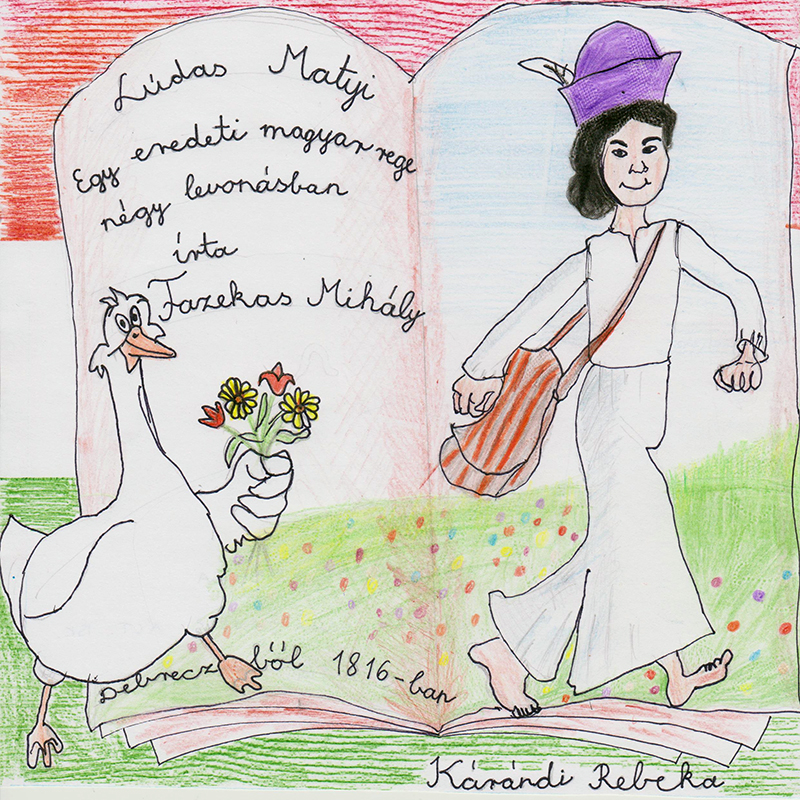 Lúdas Matyi
Egy eredeti magyar rege
négy levonásban
írta
Fazekas Mihály
Debrecz ből 1816-ban
Kárándi Rebeka